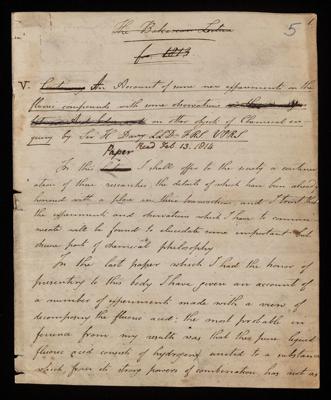 The Bakerian Lecture
for 1813
5
V. An Account of some new experiments on the
fluoric compounds with some observations
on other objects of Chemical en-
quiry by Sir H. Davy LLD. FRS VPRS
Paper Read Feb. 13. 1814
In this I shall offer to the society a continu-
ation of those researches, the details of which have been already
honored with a place in their transactions, and I trust that
the experiments and observations which I have to commu-
nicate will be found to elucidate some important but
obscure parts of chemical philosophy
In the last paper which I had the honor of
presenting to this body I have given an account of
a number of experiments made with a view of
decomposing the fluoric acid; the most probable in-
ference from my results was that the pure liquid
fluoric acid consists of hydrogen united to a substance
which from its strong powers of combination has not as